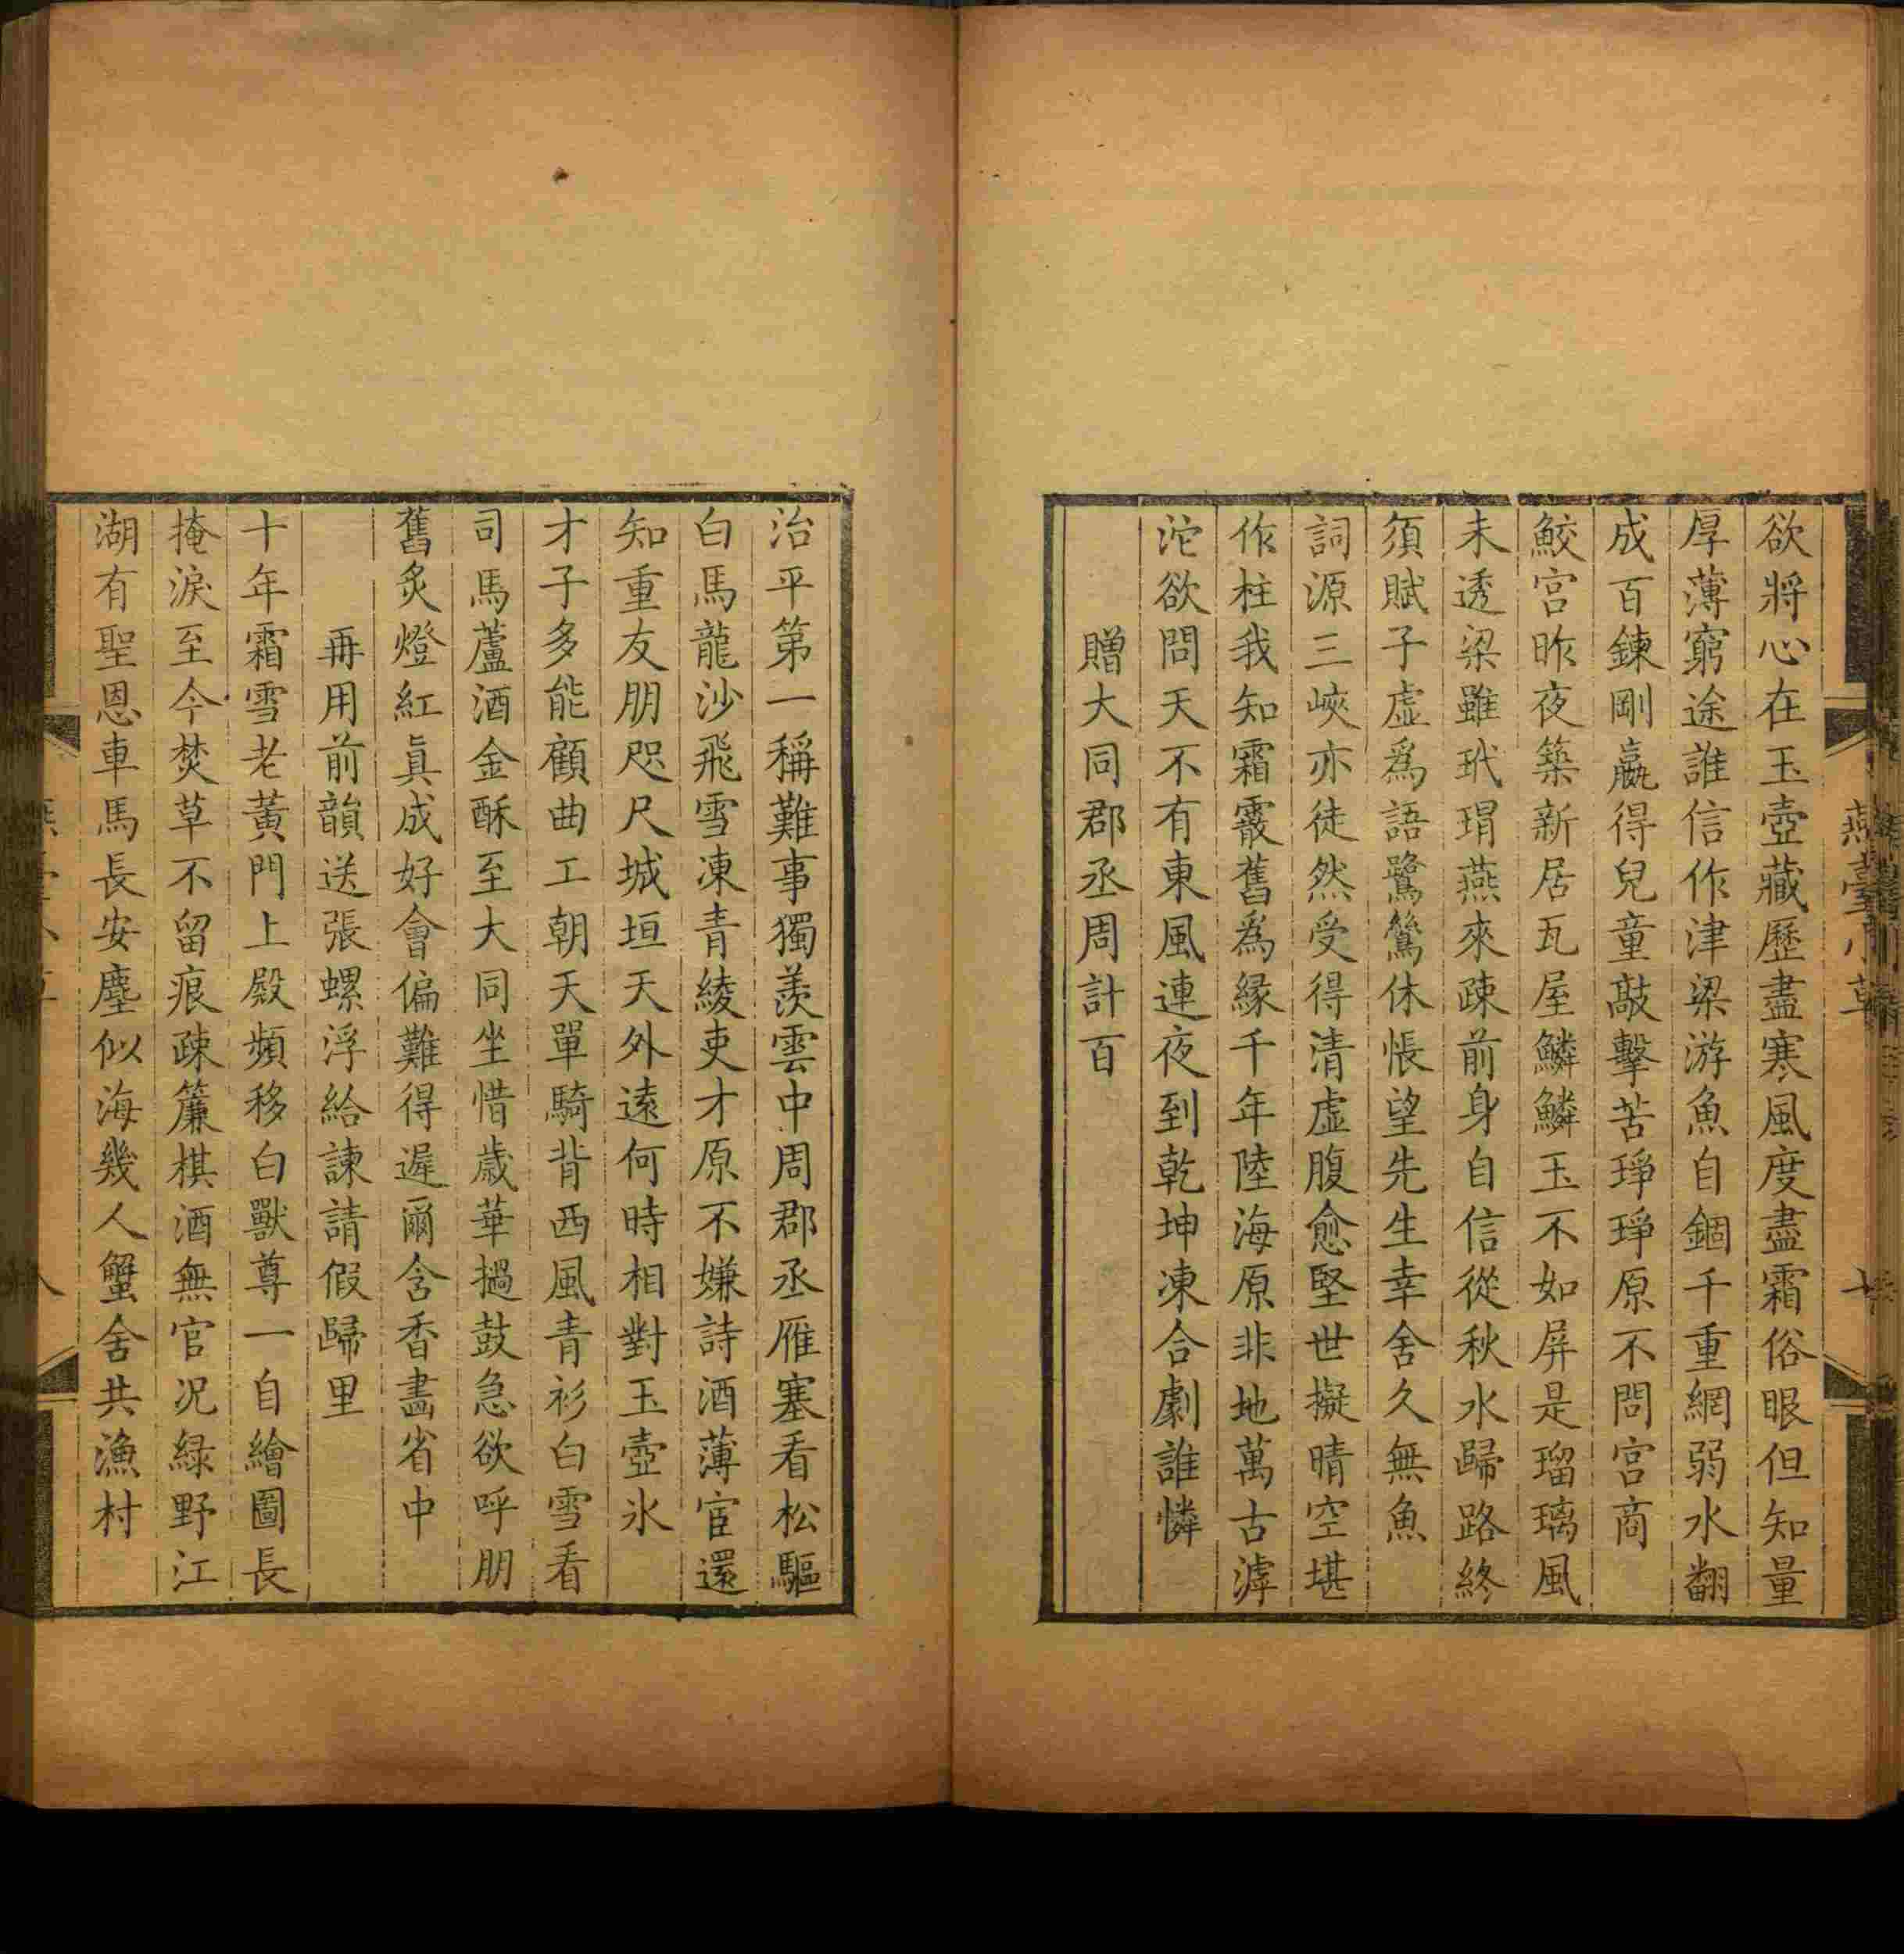 欲將心在玉壺藏歷盡寒風度盡霜俗眼但知量
厚薄窮途誰信作津梁游魚自錮千重網弱水翻
成百鍊剛嬴得兒童敲擊苦琤琤原不問宮商
鮫宮昨夜築新居瓦屋鱗鱗玉不如屏是瑠璃風
未透梁雖玳瑁燕來疎前身自信從秋水歸路終
須賦子虛爲語鷺鶿休悵望先生幸舍久無魚
詞源三峽亦徒然受得清虛腹愈堅世擬晴空堪
作柱我知霜霰舊爲緣千年陸海原非地萬古滹
沱欲問天不有東風連夜到乾坤凍合劇誰憐
贈大同郡丞周計百
治平第一稱難事獨羨雲中周郡丞雁塞看松驅
白馬龍沙飛雪凍青綾吏才原不嫌詩酒薄宦還
知重友朋咫尺城垣天外遠何時相對玉壺氷
才子多能顧曲工朝天單騎背西風青衫白雪看
司馬蘆酒金酥至大同坐惜歲華撾鼓急欲呼朋
舊炙燈紅真成好會偏難得遲爾含香畵省中
再用前韻送張螺浮給諫請假歸里
十年霜雪老黃門上殿頻移白獸尊一自繪圖長
掩淚至今焚草不留痕疎簾棋酒無官况緑野江
湖有聖恩車馬長安塵似海幾人蟹舍共漁村
燕臺小草
八